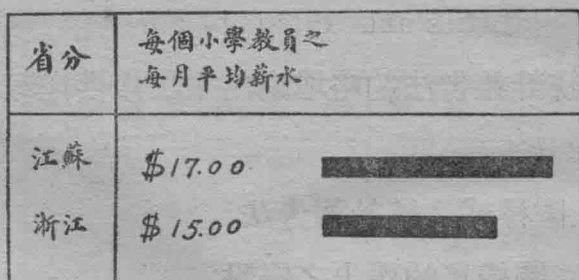 省分
每個小學教員之
每月平均薪水
江蘇 $17.00
浙江 $15.00